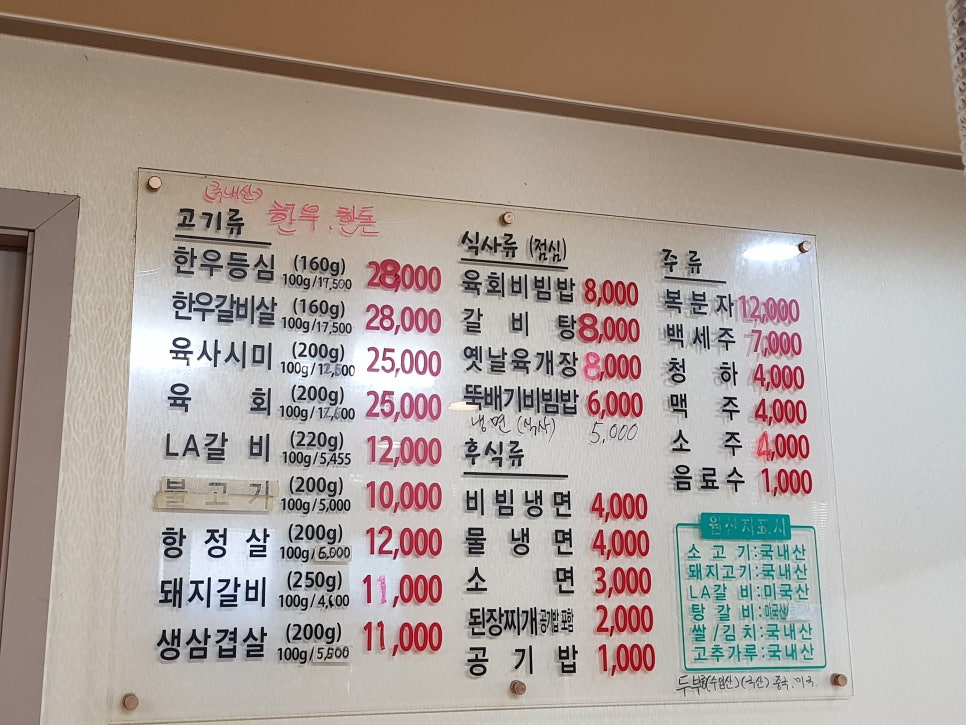 (국내산)
고기류 한우.한돈
한우등심 (160g) 100g/17,500 28,000
한우갈비살 (160g) 100g/17,500 28,000
육사시미 (200g) 100g/12,500 25,000
육회 (200g) 25,000
LA갈비 (220g) 100g/5,455 12,000
불고기 (200g) 100g/5,000 10,000
항정살 (200g) 100g/6,000 12,000
돼지갈비 (250g) 100g/4,400 11,000
생삼겹살 (200g) 100g/5,500 11,000
식사류 (점심)
육회비빔밥 8,000
갈비탕 8,000
옛날육개장 8,000
뚝배기비빔밥 6,000
냉면 (식사) 5,000
후식류
비빔냉면 4,000
물냉면 4,000
소면 3,000
된장찌개 공기밥 포함 2,000
공기밥 1,000
주류
복분자 12,000
백세주 7,000
청하 4,000
맥주 4,000
소주 4,000
음료수 1,000
원산지표시
소고기:국내산
돼지고기:국내산
LA갈비:미국산
탕갈비:미국산
쌀/김치:국내산
고추가루:국내산
두부콩(수입산)